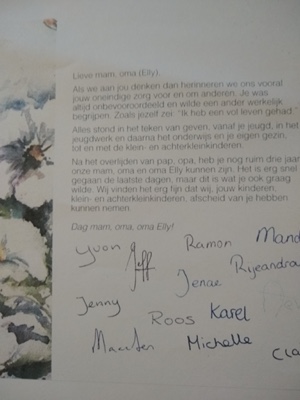 Lieve mam, oma (Elly),
Als we aan jou denken dan herinneren we ons vooral
jouw oneindige zorg voor en om anderen. Je was
altijd onbevooroordeeld en wilde een ander werkelijk
begrijpen. Zoals jezelf zei: "Ik heb een vol leven gehad."
Alles stond in het teken van geven, vanaf je jeugd, in het
jeugdwerk en daarna het onderwijs en je eigen gezin,
tot en met de klein- en achterkleinkinderen.
Na het overlijden van pap, opa, heb je nog ruim drie jaar
onze mam, oma en oma Elly kunnen zijn. Het is erg snel
gegaan de laatste dagen, maar dit is wat je ook graag
wilde. Wij vinden het erg fijn dat wij, jouw kinderen,
klein- en achterkleinkinderen, afscheid van je hebben
kunnen nemen.
Dag mam, oma, oma Elly!
Yvon Jeff Ramon Mand
Jenae Ryeandra
Jenny Roos Karel
Maarten Michelle Cla